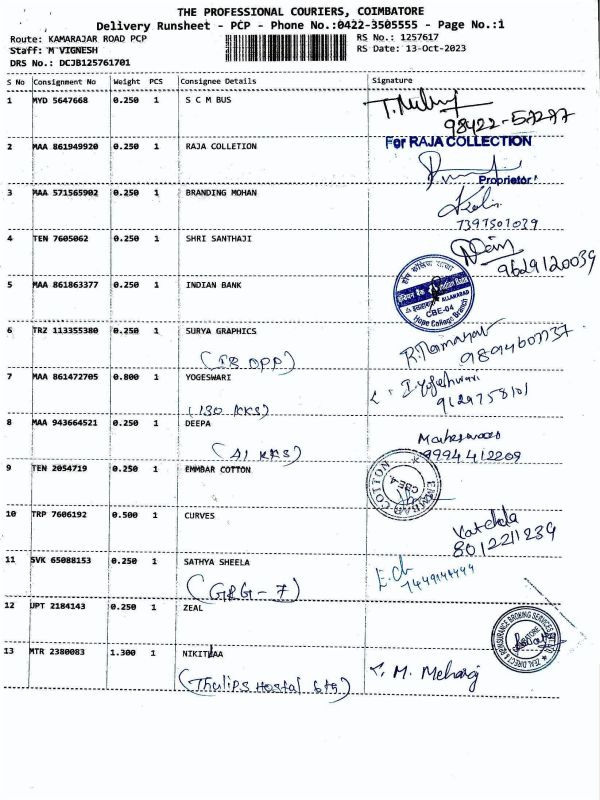 THE PROFESSIONAL COURIERS, COIMBATORE
Delivery Runsheet - PCP - Phone No.:0422-3505555 - Page No.:1
Route: KAMARAJAR ROAD PCP RS No.: 1257617
Staff: M VIGNESH RS Date: 13-Oct-2023
DRS No.: DCJB125761701
S No Consignment No Weight PCS Consignee Details Signature
1 MYD 5647668 0.250 1 S C M BUS
98422-57277
2 MAA 861949920 0.250 1 RAJA COLLETION For RAJA COLLECTION
Proprietor
3 MAA 571565902 0.250 1 BRANDING MOHAN
7397507039
4 TEN 7605062 0.250 1 SHRI SANTHAJI
9629120039
5 MAA 861863377 0.250 1 INDIAN BANK
इंडियन बैंक Indian Bank
ALLAHABAD
CBE-04
Hope College Branch
6 TRZ 113355380 0.250 1 SURYA GRAPHICS
7 MAA 861472705 0.800 1 YOGESWARI
9129758101
(130 KKS)
8 MAA 943664521 0.250 1 DEEPA
(41 KKS) 9994412209
9 TEN 2054719 0.250 1 EMMBAR COTTON
EMMBAR COTTON
CBE-4
10 TRP 7606192 0.500 1 CURVES
8012211239
11 SVK 65088153 0.250 1 SATHYA SHEELA
(GRG - 7)
12 UPT 2184143 0.250 1 ZEAL
13 MTR 2380083 1.300 1 NIKITHAA
M. Meharaj
(Thulips Hostal